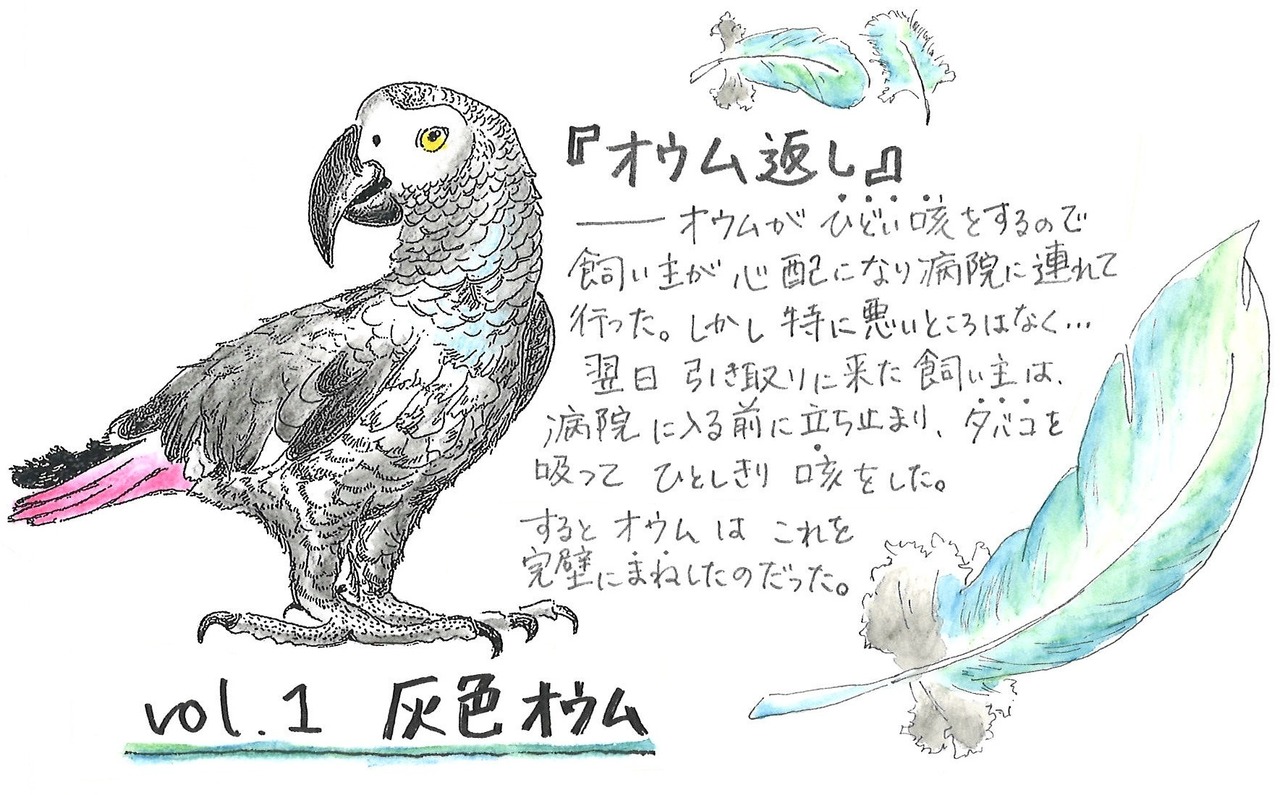 『オウム返し』
── オウムが ひどい咳をするので
飼い主が心配になり病院に連れて
行った。しかし特に悪いところはなく…
翌日 引き取りに来た飼い主は、
病院に入る前に立ち止まり、タバコを
吸って ひとしきり 咳をした。
すると オウムは これを
完璧にまねしたのだった。
vol.1 灰色オウム